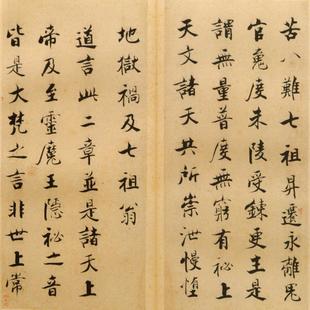 苦八難七祖昇遷永離鬼
官魂度朱陵受鍊更生是
謂無量普度無窮有秘上
天文諸天共所崇泄慢墮
地獄禍及七祖翁
道言此二章並是諸天上
帝及至靈魔王隱祕之音
皆是大梵之言非世上常